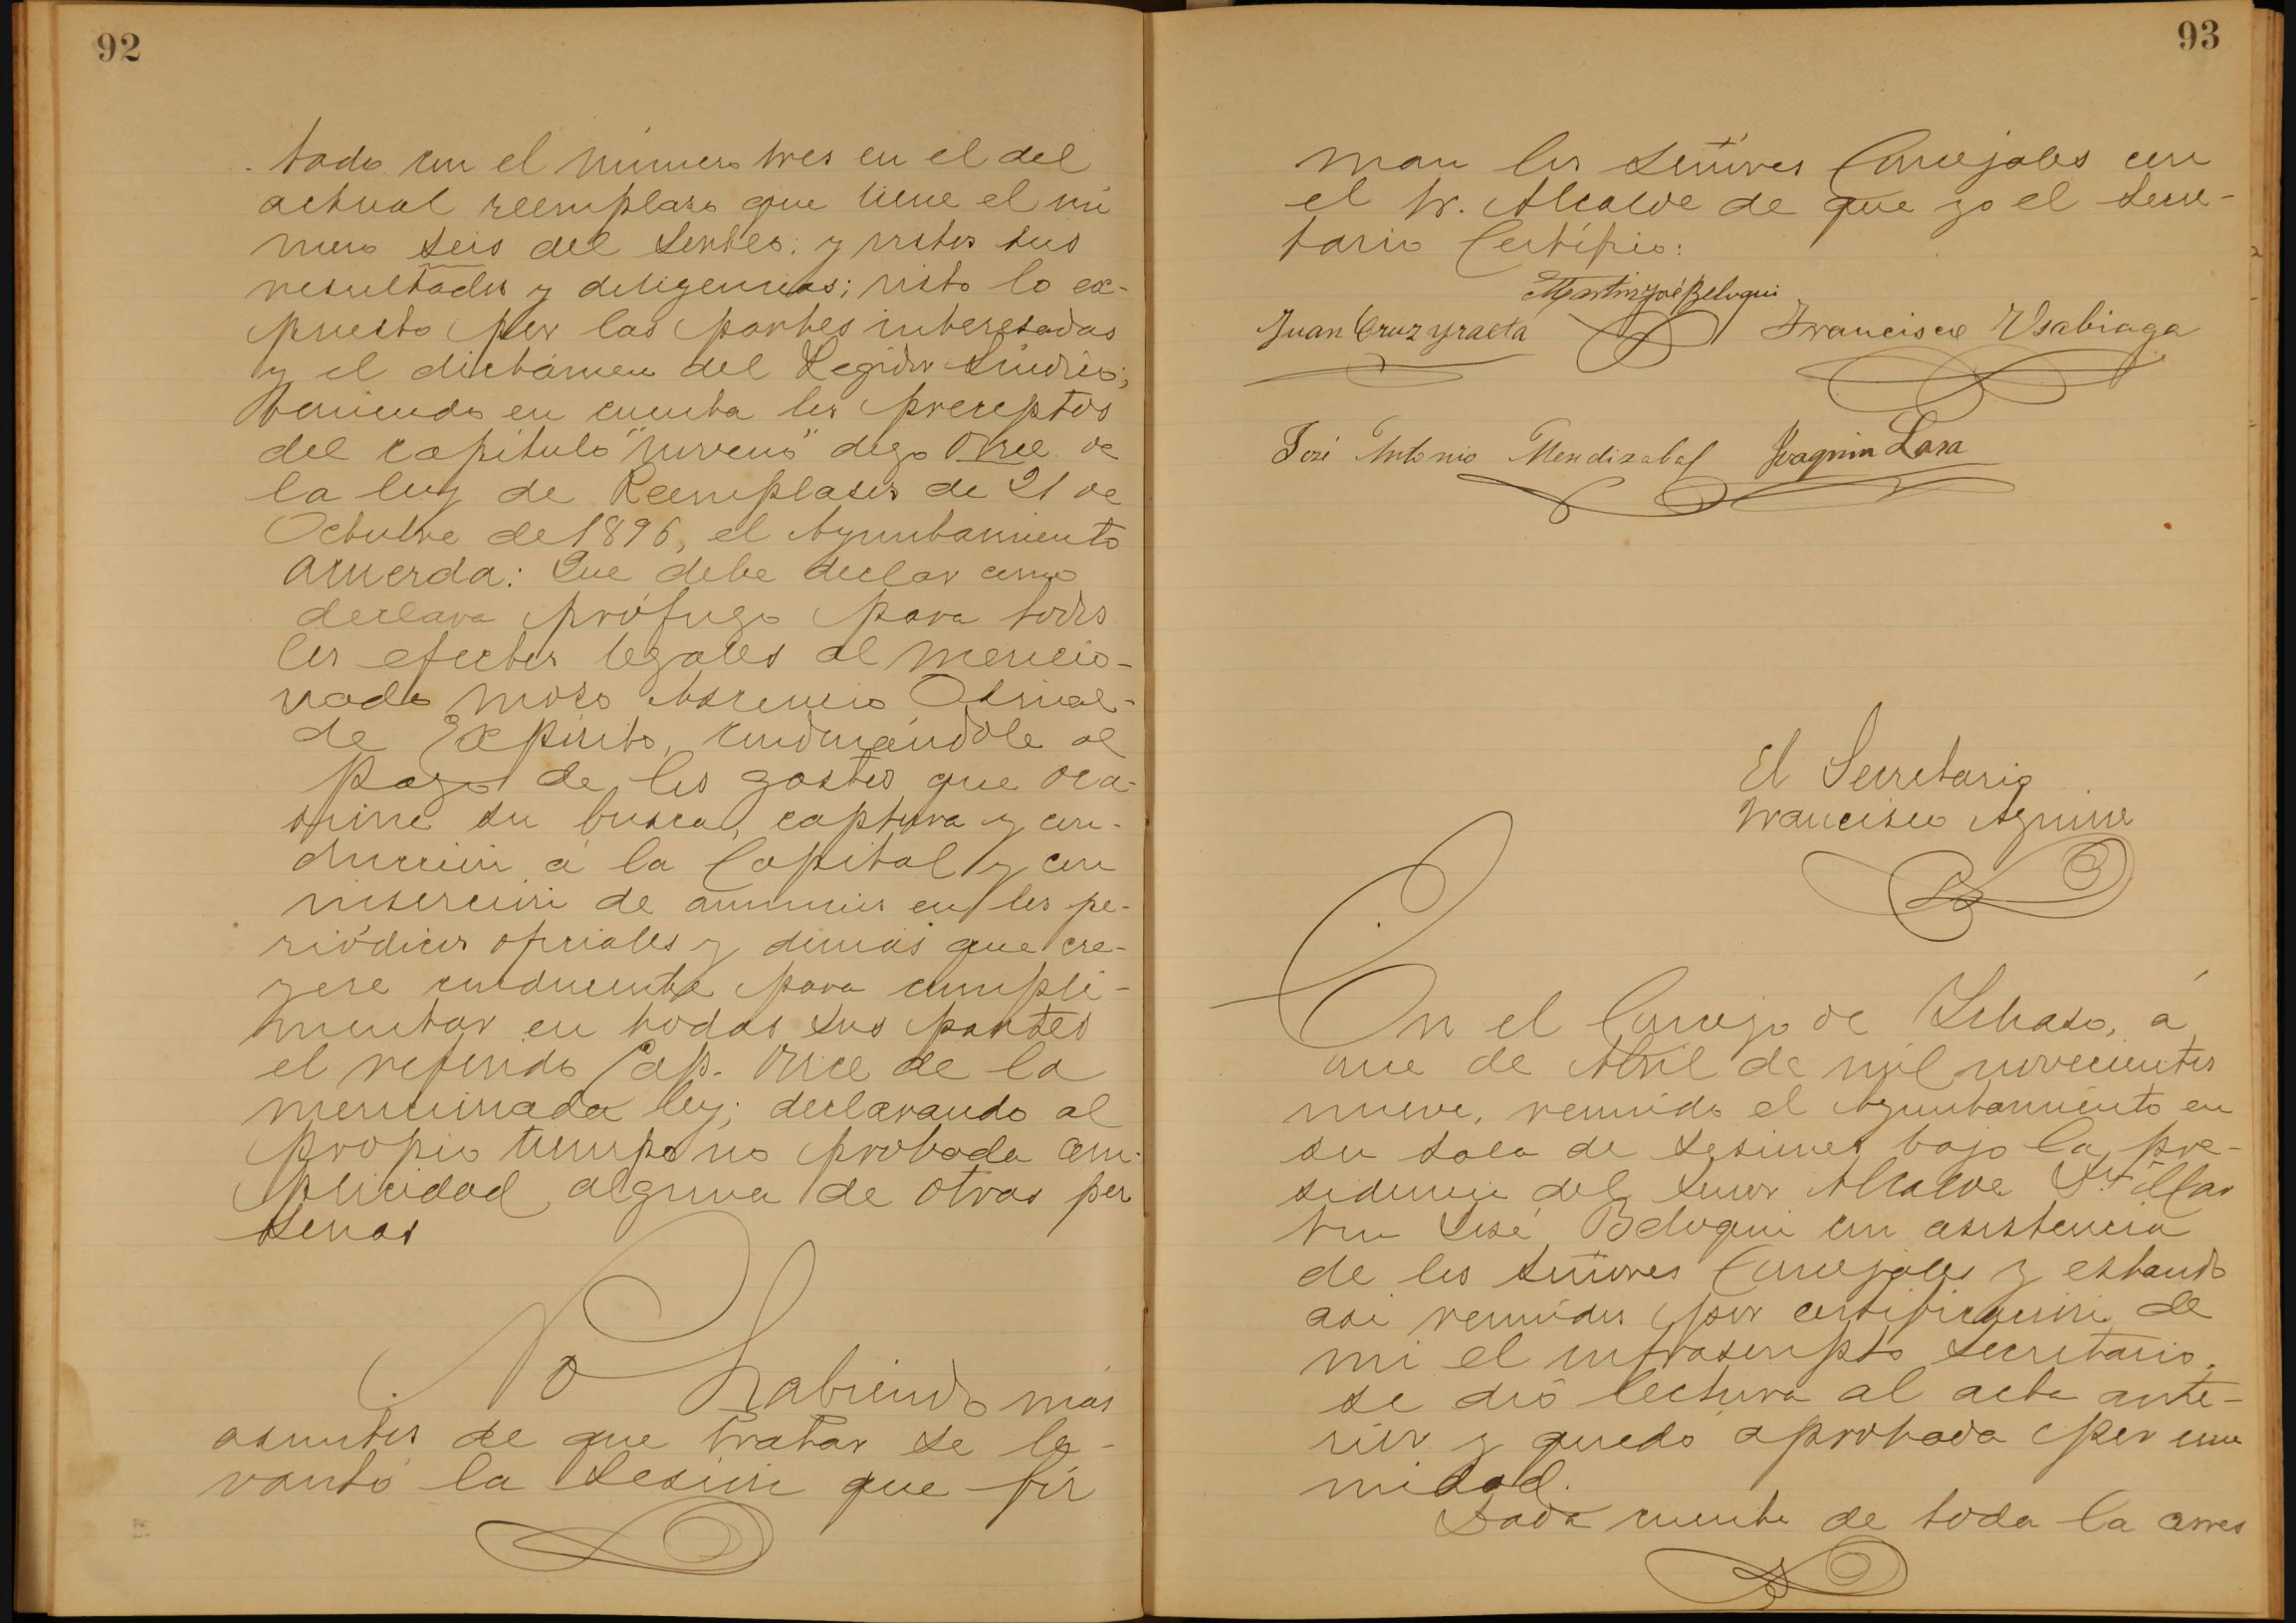 92
tado con el número tres en el del
actual reemplazo que tiene el nú
mero seis del sorteo; y vistos sus
resultados y diligencias; visto lo ex-
puesto por las partes interesadas
y el dictámen del Regidor Síndico;
teniendo en cuenta los preceptos
del capítulo "noveno" digo Once de
la ley de Reemplazos de 21 de
Octubre de 1896, el Ayuntamiento
acuerda: Que debe declar como
declara prófugo para todos
los efectos legales al mencio-
nado mozo
de Expósito, condenándole al
pago de los gastos que oca-
sione su busca, captura y con-
ducción á la Capital y con
inserción de anuncios en los pe-
riódicos oficiales y demás que cre-
yere conducente para cumpli-
mentar en todas sus partes
el referido Cap. Once de la
mencionada ley; declarando al
propio tiempo no probada com-
plicidad alguna de otras per
sonas
No habiendo más
asuntos de que tratar se le-
vantó la sesión que fir
93
man los Señores Concejales con
el Sr. Alcalde de que yo el Secre-
tario Certifico:
Martin José Beloqui
Juan Cruz Yraeta Francisco Usabiaga
José Antonio Mendizabal Joaquin Lasa
El Secretario
Francisco Aguirre
En el Concejo de Ichaso, á
once de Abril de mil novecientos
nueve, reunido el Ayuntamiento en
su sala de sesiones bajo la pre-
sidencia del Señor Alcalde Dn Mar
tin José Beloqui con asistencia
de los Señores Concejales y estando
asi reunidos por certificación de
mi el infrascripto Secretario,
se dió lectura al acta ante-
rior y quedó aprobada por una
midad.
Dada cuenta de toda la corres